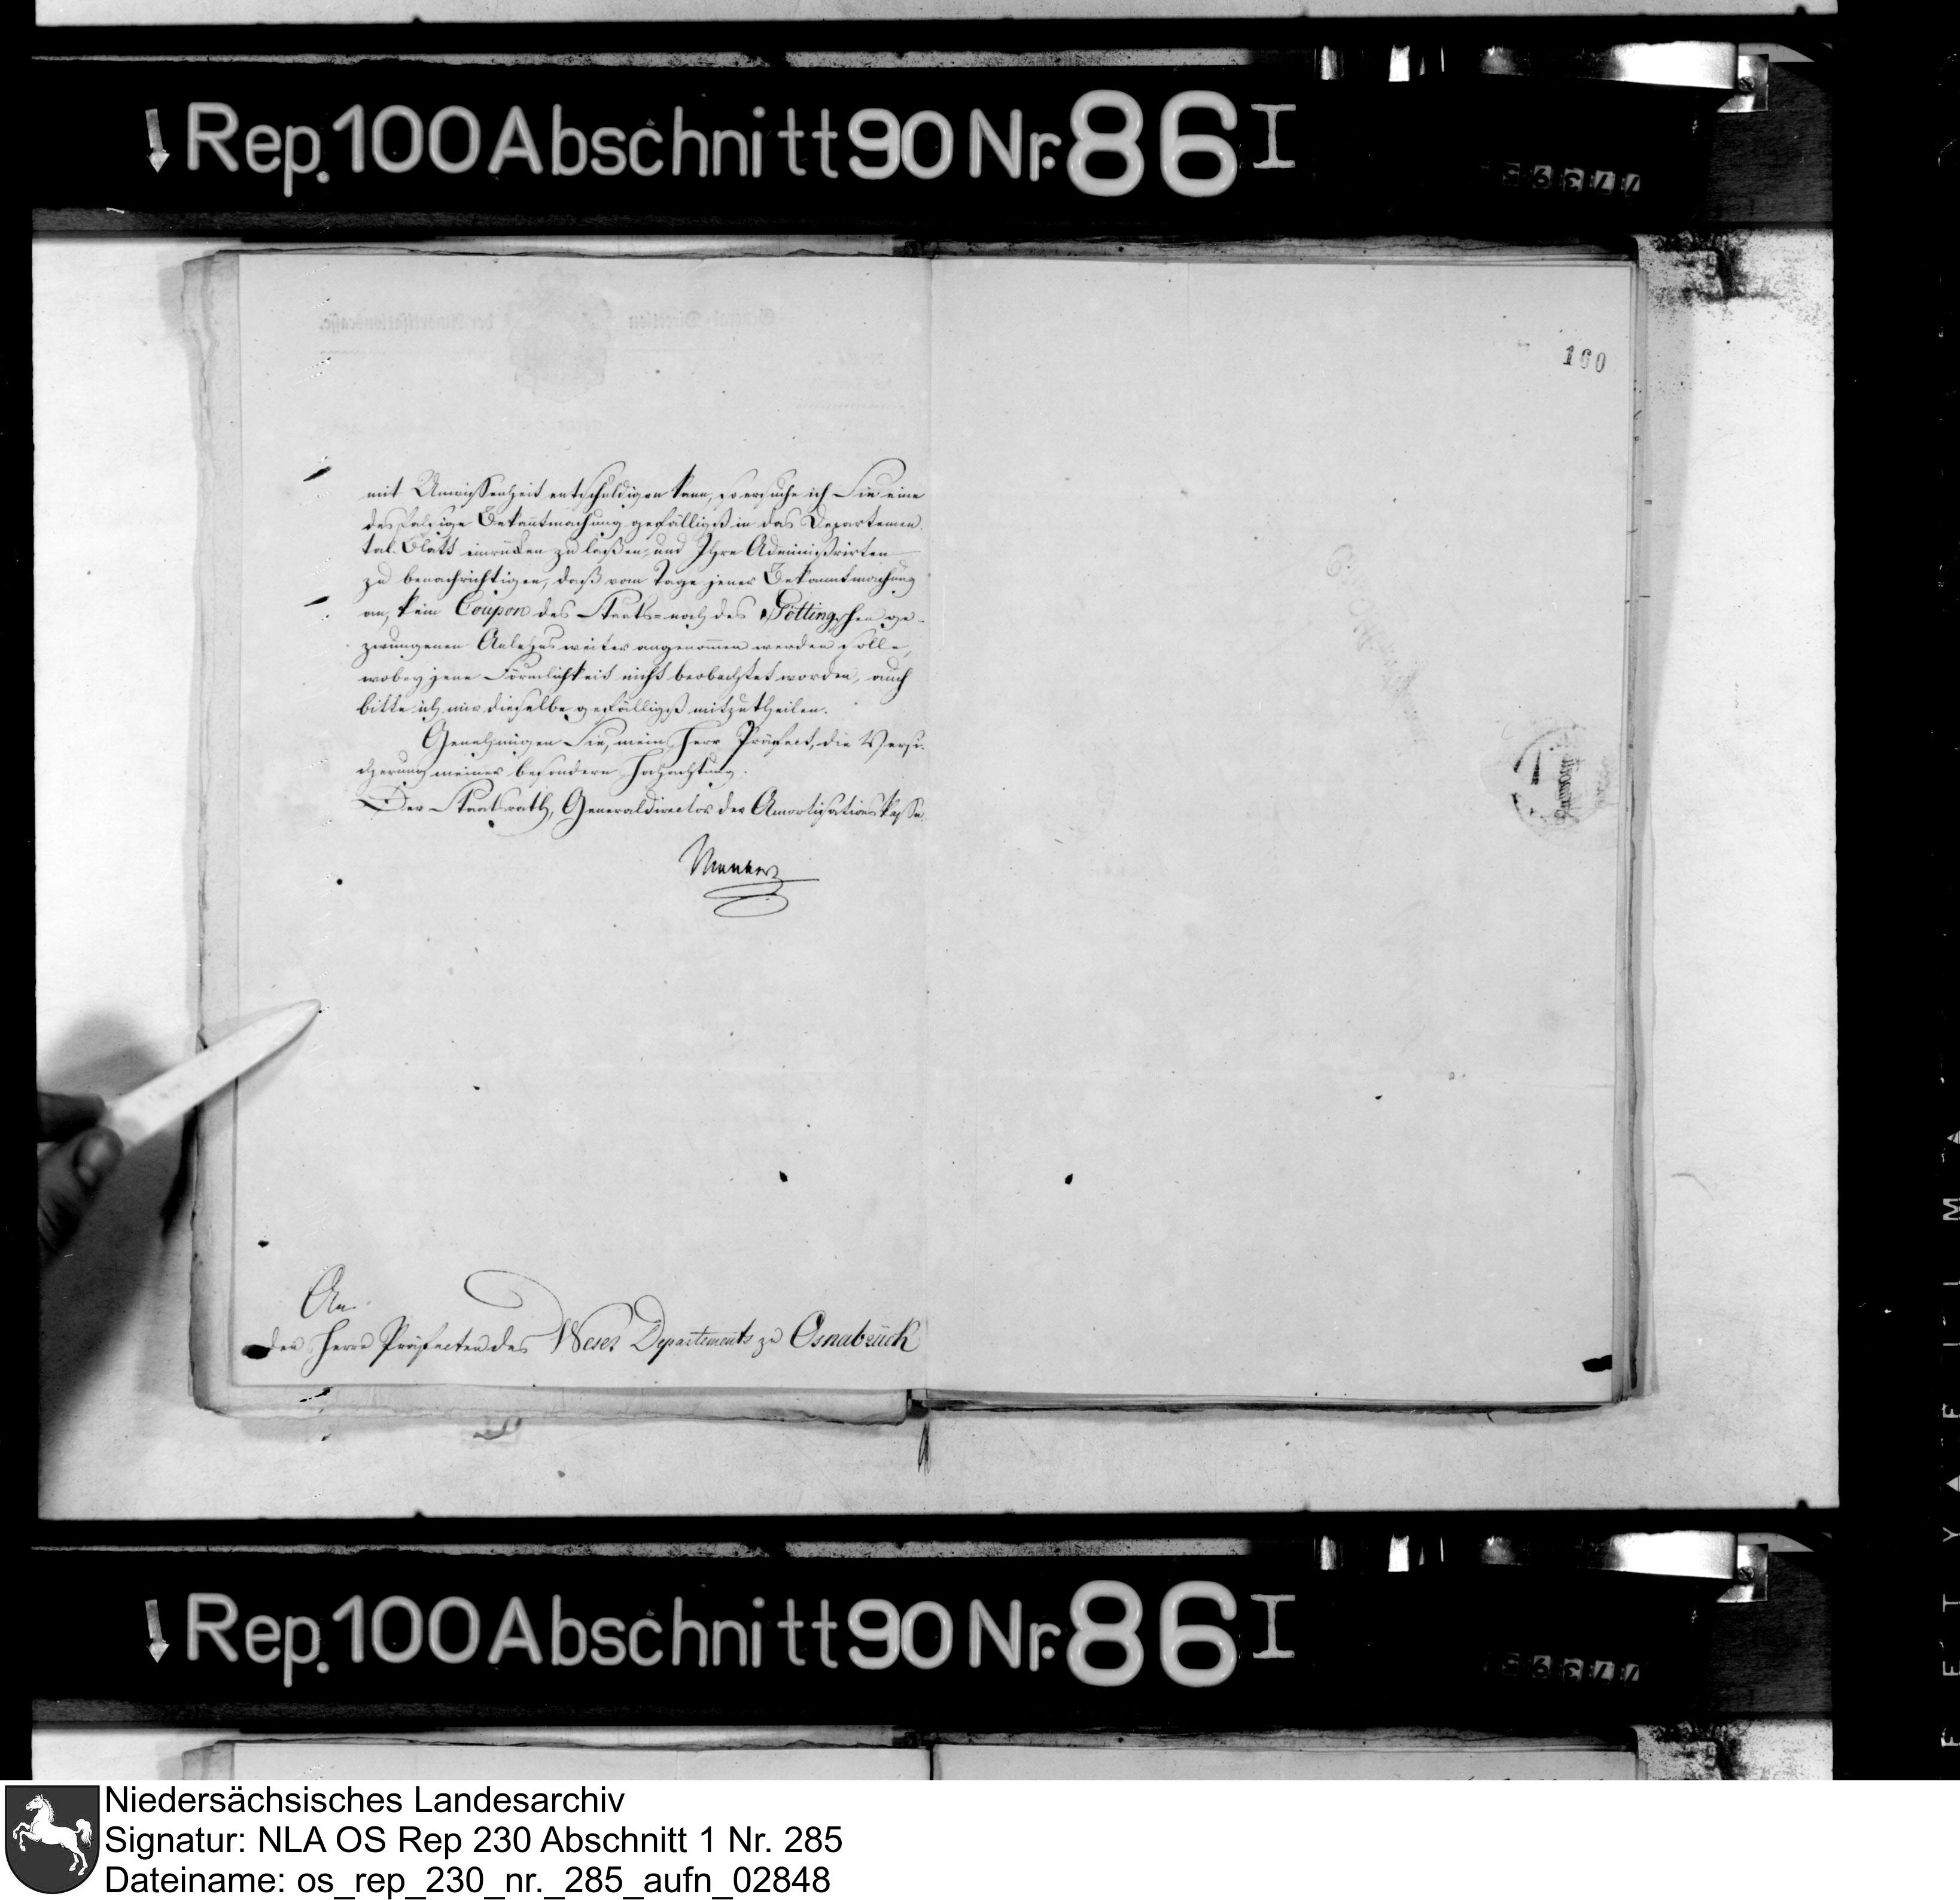 ↓ Rep. 100 Abschnitt 90 Nr. 86 I
160
mit Unwissenheit entschuldigen kann, so ersuche ich Sie eine
desfalsige Bekanntmachung gefälligst in das Departemen-
tal-Blatt einrücken zu laßen, und Ihre Administrirten
zu benachrichtigen, daß vom Tage jener Bekanntmachung
an, kein Coupon des Staats- noch des Göttingschen ge-
zwungenen Anlehns weiter angenommen werden solle,
wobey jene Förmlichkeit nicht beobachtet worden, auch
bitte ich mir dieselbe gefälligst mitzutheilen.
Genehmigen Sie, mein Herr Präfect, die Versi-
cherung meiner besondern Hochachtung.
Der Staatsrath, Generaldirector der Amortisationskasse
An
den Herrn Präfecten des Weser Departements zu Osnabrück
↓ Rep. 100 Abschnitt 90 Nr. 86 I
Niedersächsisches Landesarchiv
Signatur: NLA OS Rep 230 Abschnitt 1 Nr. 285
Dateiname: os_rep_230_nr._285_aufn_02848